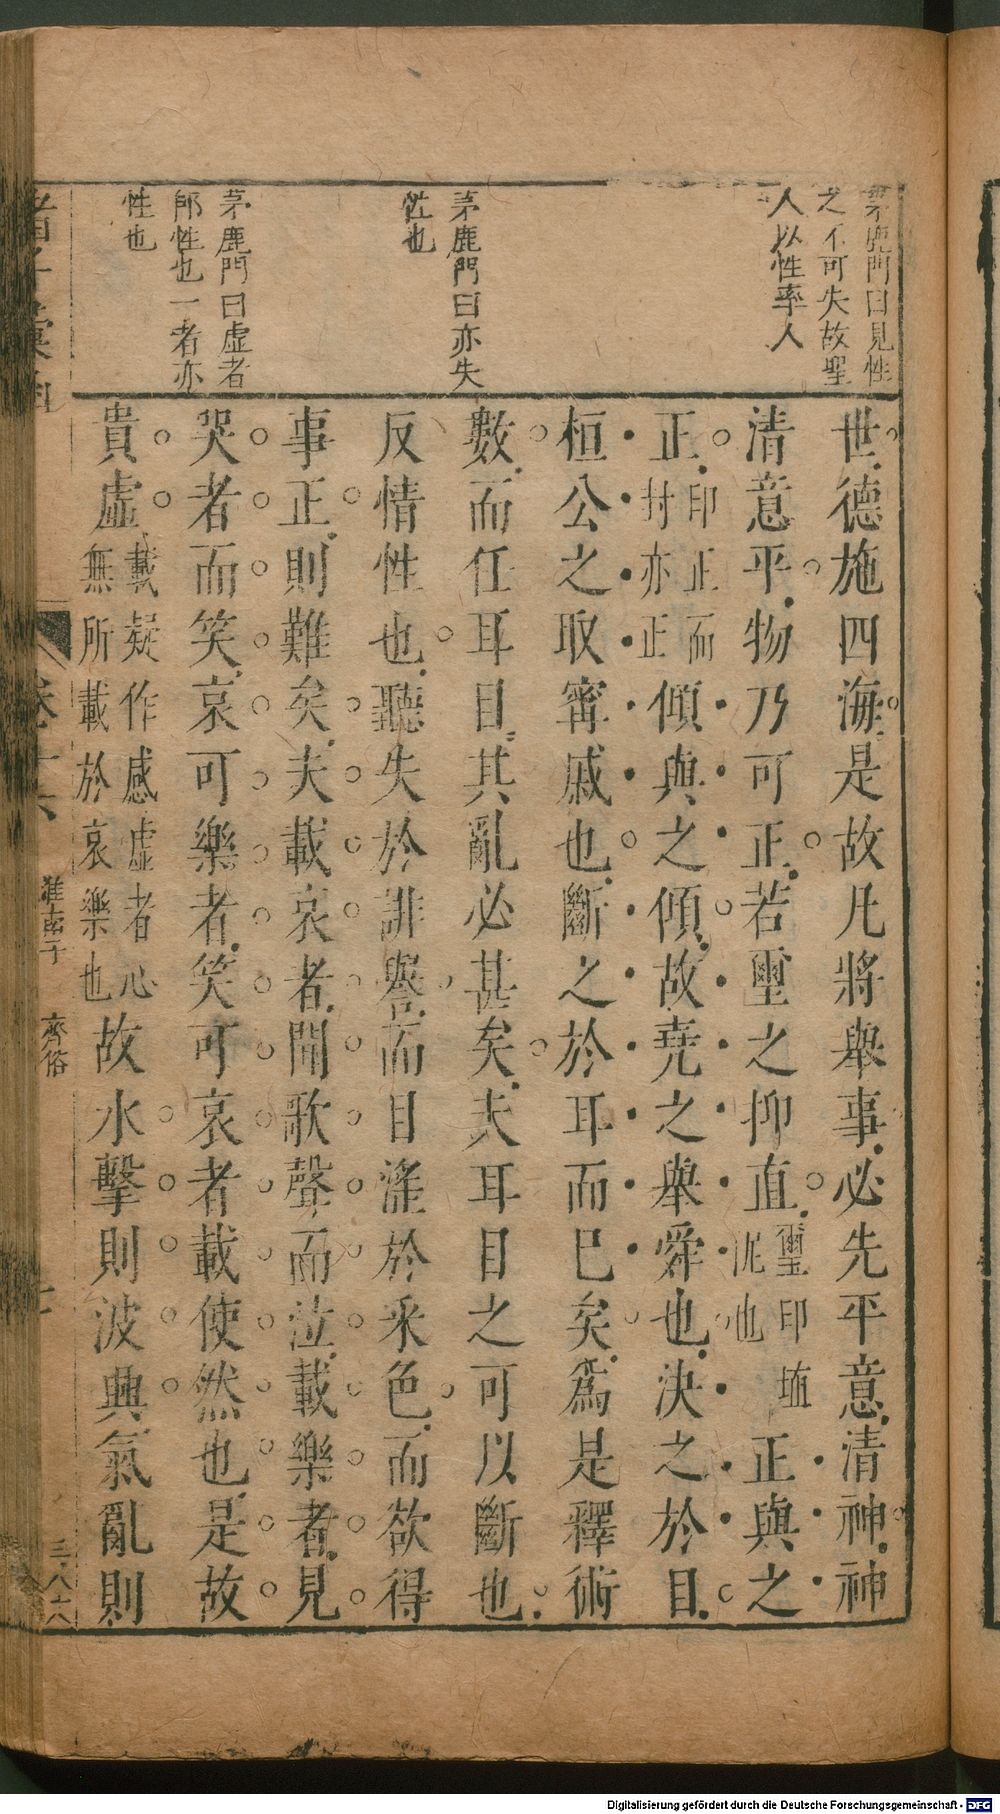 茅鹿門曰見性
之不可失故聖
人以性率人
茅鹿門曰亦失
性也
茅鹿門曰虛者
郎性也一者亦
性也
世德施四海是故凡將舉事必先平意清神神
清意平物乃可正若璽之抑直璽印埴泥也正與之
正印正而封亦正傾與之傾故堯之舉舜也決之於目
桓公之取甯戚也斷之於耳而巳矣爲是釋術
數而任耳目其亂必甚矣夫耳目之可以斷也
反情性也聽失於誹譽而目淫於釆色而欲得
事正則難矣夫載哀者聞歌聲而泣載樂者見
哭者而笑哀可樂者笑可哀者載使然也是故
貴虛載疑作感虛者心無所載於哀樂也故水擊則波興氣亂則
卷十六
淮南子
齊俗
三八六
Digitalisierung gefördert durch die Deutsche Forschungsgemeinschaft - DFG